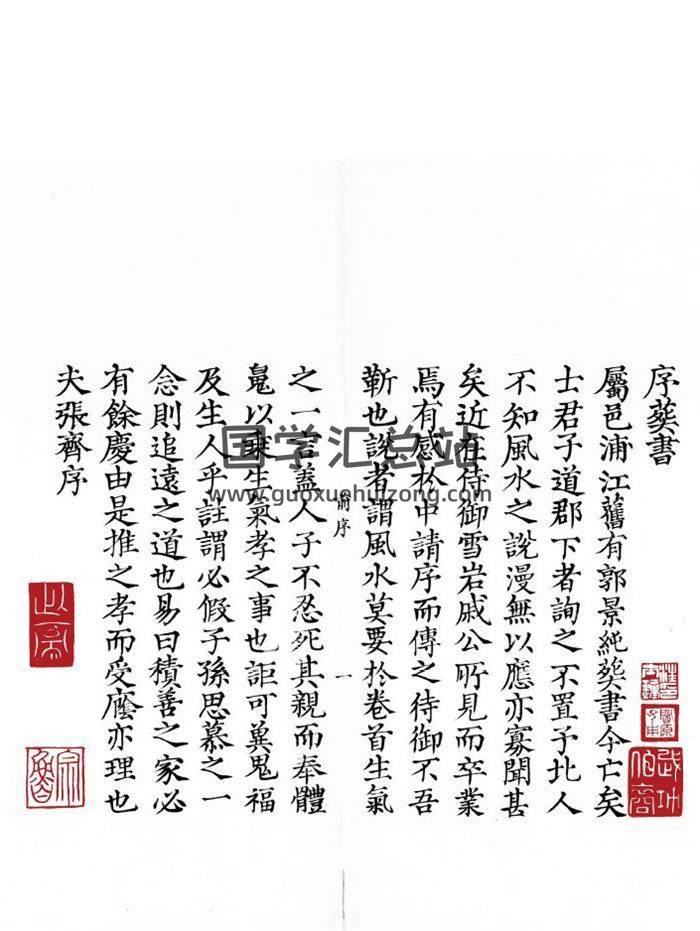 序葬書
屬邑浦江舊有郭景純葬書今亡矣
士君子道郡下者詢之不置予北人
不知風水之説漫無以應亦寡聞甚
矣近在待御雪岩戚公所見而卒業
焉有感於中請序而傳之待御不吾
靳也説者謂風水莫要於卷首生氣
前序
一
之一言蓋人子不忍死其親而奉體
䰟以乘生氣孝之事也詎可冀鬼福
及生人乎註謂必假子孫思慕之一
念則追遠之道也易曰積善之家必
有餘慶由是推之孝而受廕亦理也
夫張齊序
国学汇总站
www.guoxuehuizong.com